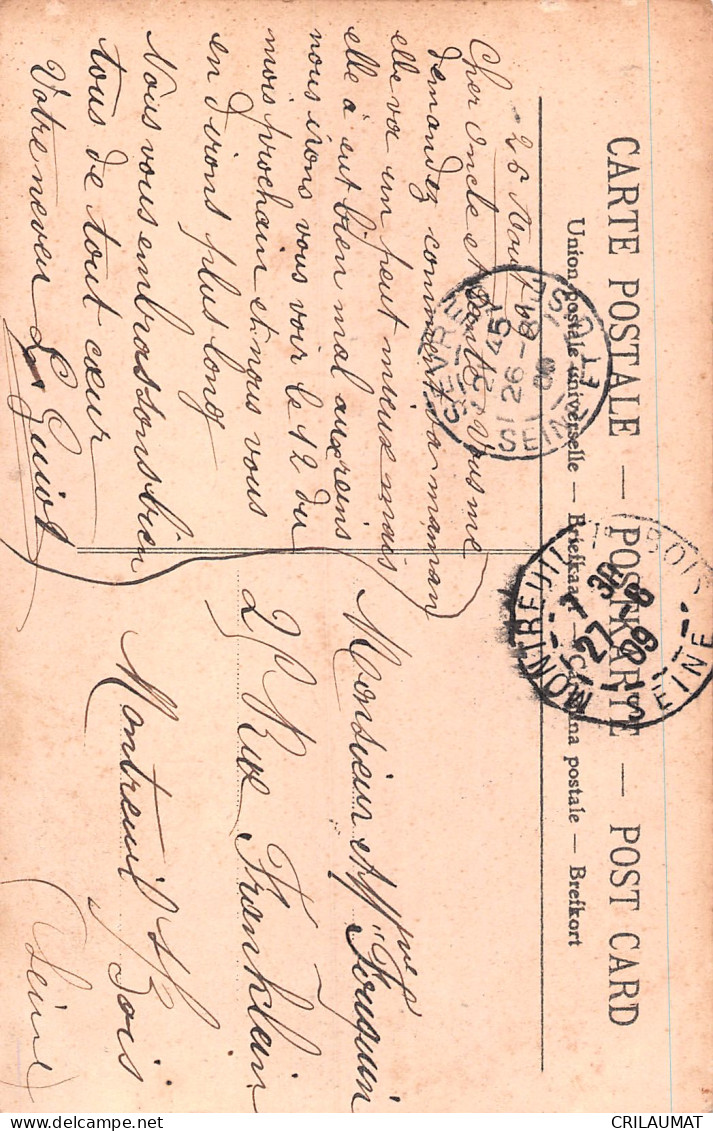 CARTE POSTALE — POSTKARTE — POST CARD
Union postale universelle — Briefkaart — Cartolina postale — Brefkort
SEVRES
21 45
26 - 8
09
SEINE ET OISE
MONTREUIL S BOIS
7 30
27 - 8
09
SEINE
26 Aout
Cher Oncle et Tante Vous me
demandez comment va maman
elle va un peut mieux mais
elle à eut bien mal aux reins
nous irons vous voir le 12 du
mois prochain et nous vous
en dirons plus long
Nous vous embrassons bien
tous de tout cœur
Votre neveu
Guiot
Monsieur et Mme Fouquin
2 Rue Franklain
Montreuil s/ Bois
(Seine)
CRILAUMAT